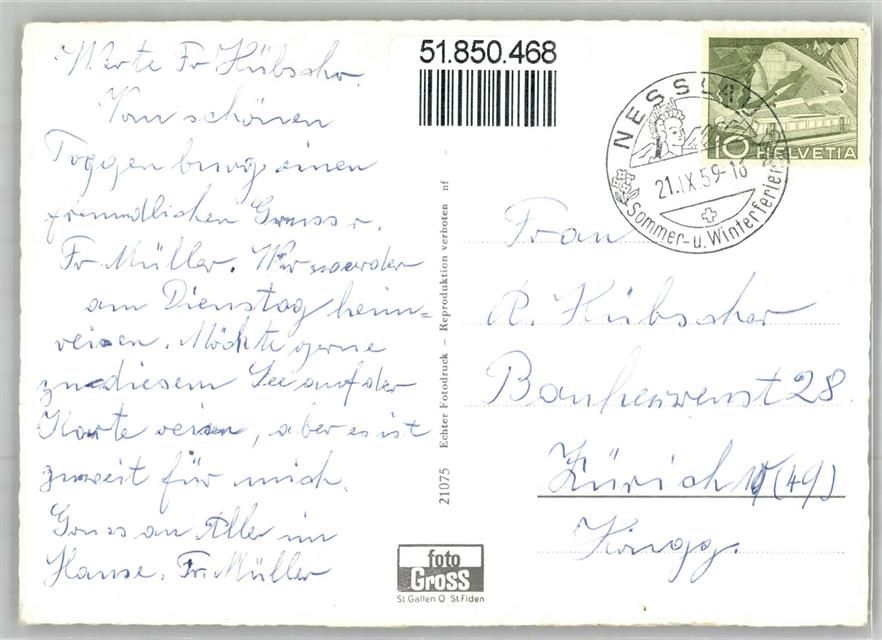 Werte Fr Hübscher.
Vom schönen
Toggenburg einen
freundlichen Gruss v.
Fr Müller. Wir werden
am Dienstag heim=
reisen. Möchte gerne
zu diesem See auf der
Karte reisen, aber es ist
zuweit für mich.
Gruss an Alle im
Hause. Fr. Müller
51.850.468
21075 Echter Fotodruck – Reproduktion verboten nf
foto
Gross
St. Gallen O St. Fiden
NESSLAU
21.IX.59-18
Sommer- u. Winterferien
10 HELVETIA
Frau
R. Hübscher
28
Zürich (49)
Höngg.